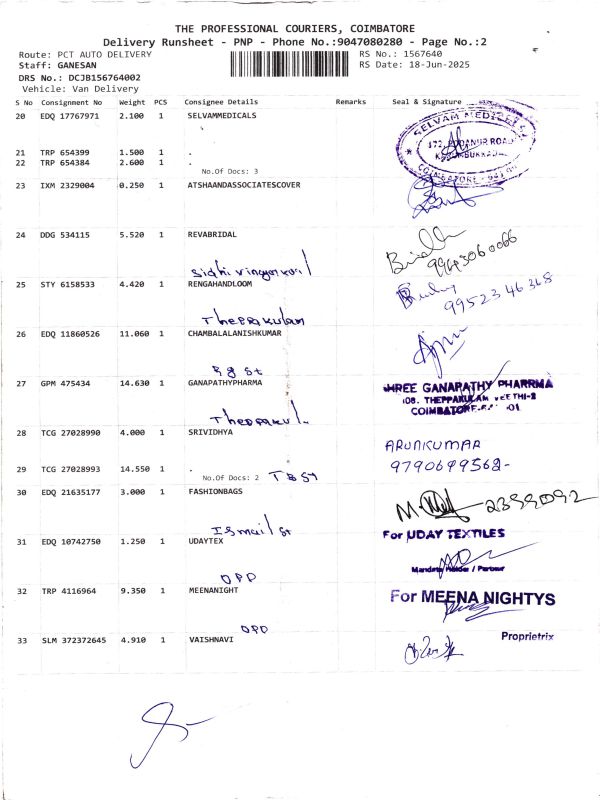 THE PROFESSIONAL COURIERS, COIMBATORE
Delivery Runsheet - PNP - Phone No.:9047080280 - Page No.:2
Route: PCT AUTO DELIVERY RS No.: 1567640
Staff: GANESAN RS Date: 18-Jun-2025
DRS No.: DCJB156764002
Vehicle: Van Delivery
S No Consignment No Weight PCS Consignee Details Remarks Seal & Signature
20 EDQ 17767971 2.100 1 SELVAMMEDICALS
SELVAM MEDICALS
ROAD
COIMBATORE
21 TRP 654399 1.500 1 .
22 TRP 654384 2.600 1 .
No.Of Docs: 3
23 IXM 2329004 0.250 1 ATSHAANDASSOCIATESCOVER
24 DDG 534115 5.520 1 REVABRIDAL
9943060066
25 STY 6158533 4.420 1 RENGAHANDLOOM
9952346368
Theppakulam
26 EDQ 11860526 11.060 1 CHAMBALALANISHKUMAR
Rg St
27 GPM 475434 14.630 1 GANAPATHYPHARMA
SHREE GANAPATHY PHARRMA
108. THEPPAKULAM VEETHI-2
COIMBATORE
28 TCG 27028990 4.000 1 SRIVIDHYA
ARUNKUMAR
9790699568-
29 TCG 27028993 14.550 1 .
No.Of Docs: 2 TBST
30 EDQ 21635177 3.000 1 FASHIONBAGS
2399092
Ismail St
31 EDQ 10742750 1.250 1 UDAYTEX
For UDAY TEXTILES
OPD
32 TRP 4116964 9.350 1 MEENANIGHT
For MEENA NIGHTYS
OPD
33 SLM 372372645 4.910 1 VAISHNAVI
Proprietrix